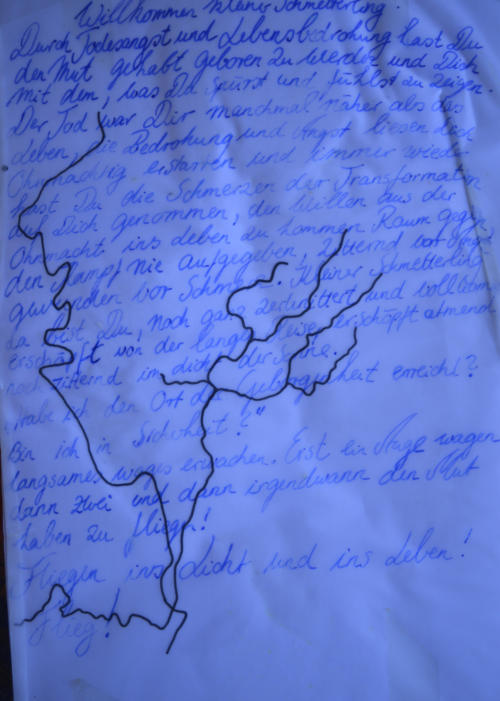 Willkommen kleiner Schmetterling.
Durch Todesangst und Lebensbedrohung hast Du
den Mut gehabt geboren zu werden und Dich
mit dem, was Du spürst und fühlst zu zeigen.
Der Tod war Dir manchmal näher als das
Leben, die Bedrohung und Angst liesen dich
Ohnmächtig erstarren und immer wieder
hast Du die Schmerzen der Transformation
auf Dich genommen, den Willen aus der
Ohnmacht ins Leben zu kommen Raum gegeben
den Kampf nie aufgegeben, zitternd vor Angst
gewunden vor Schmerz. Kleiner Schmetterling
da bist Du, noch ganz zerknittert und vollkommen
erschöpft von der langen Reise erschöpft atmend
noch zitternd im Licht der Sonne.
"habe ich den Ort der Geborgenheit erreicht?
Bin ich in Sicherheit?"
langsames wages erwachen. Erst ein Auge wagen
dann zwei und dann irgendwann den Mut
haben zu fliegen!
Fliegen ins Licht und ins Leben!
Flieg!